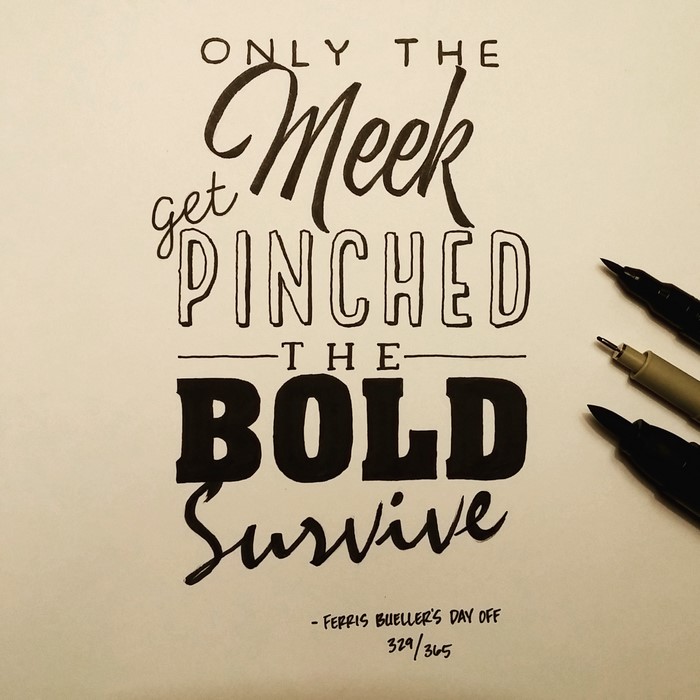 ONLY THE
Meek
get
PINCHED
THE
BOLD
Survive
- FERRIS BUELLER'S DAY OFF
329/365